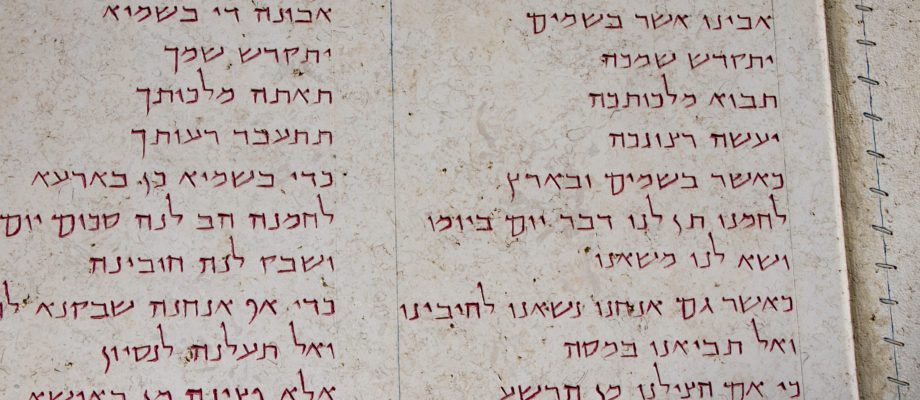 אבינו אשר בשמים
יתקדש שמכה
תבוא מלכותכה
יעשה רצונכה
כאשר בשמים ובארץ
לחמנו תן לנו דבר יום ביומו
ושא לנו משאינו
כאשר גם אנחנו נשאנו לחיבינו
ואל תביאנו במסה
כי אם הצילנו מן הרשע
אבונה די בשמיא
יתקדש שמך
תאתה מלכותך
תתעבד רעותך
כדי בשמיא כן בארעא
לחמנה הב לנה סכום יום
ושבק לנה חובינה
כדי אף אנחנה שבקנא
ואל תעלנה לנסיון
אלא פצינה מן באישא